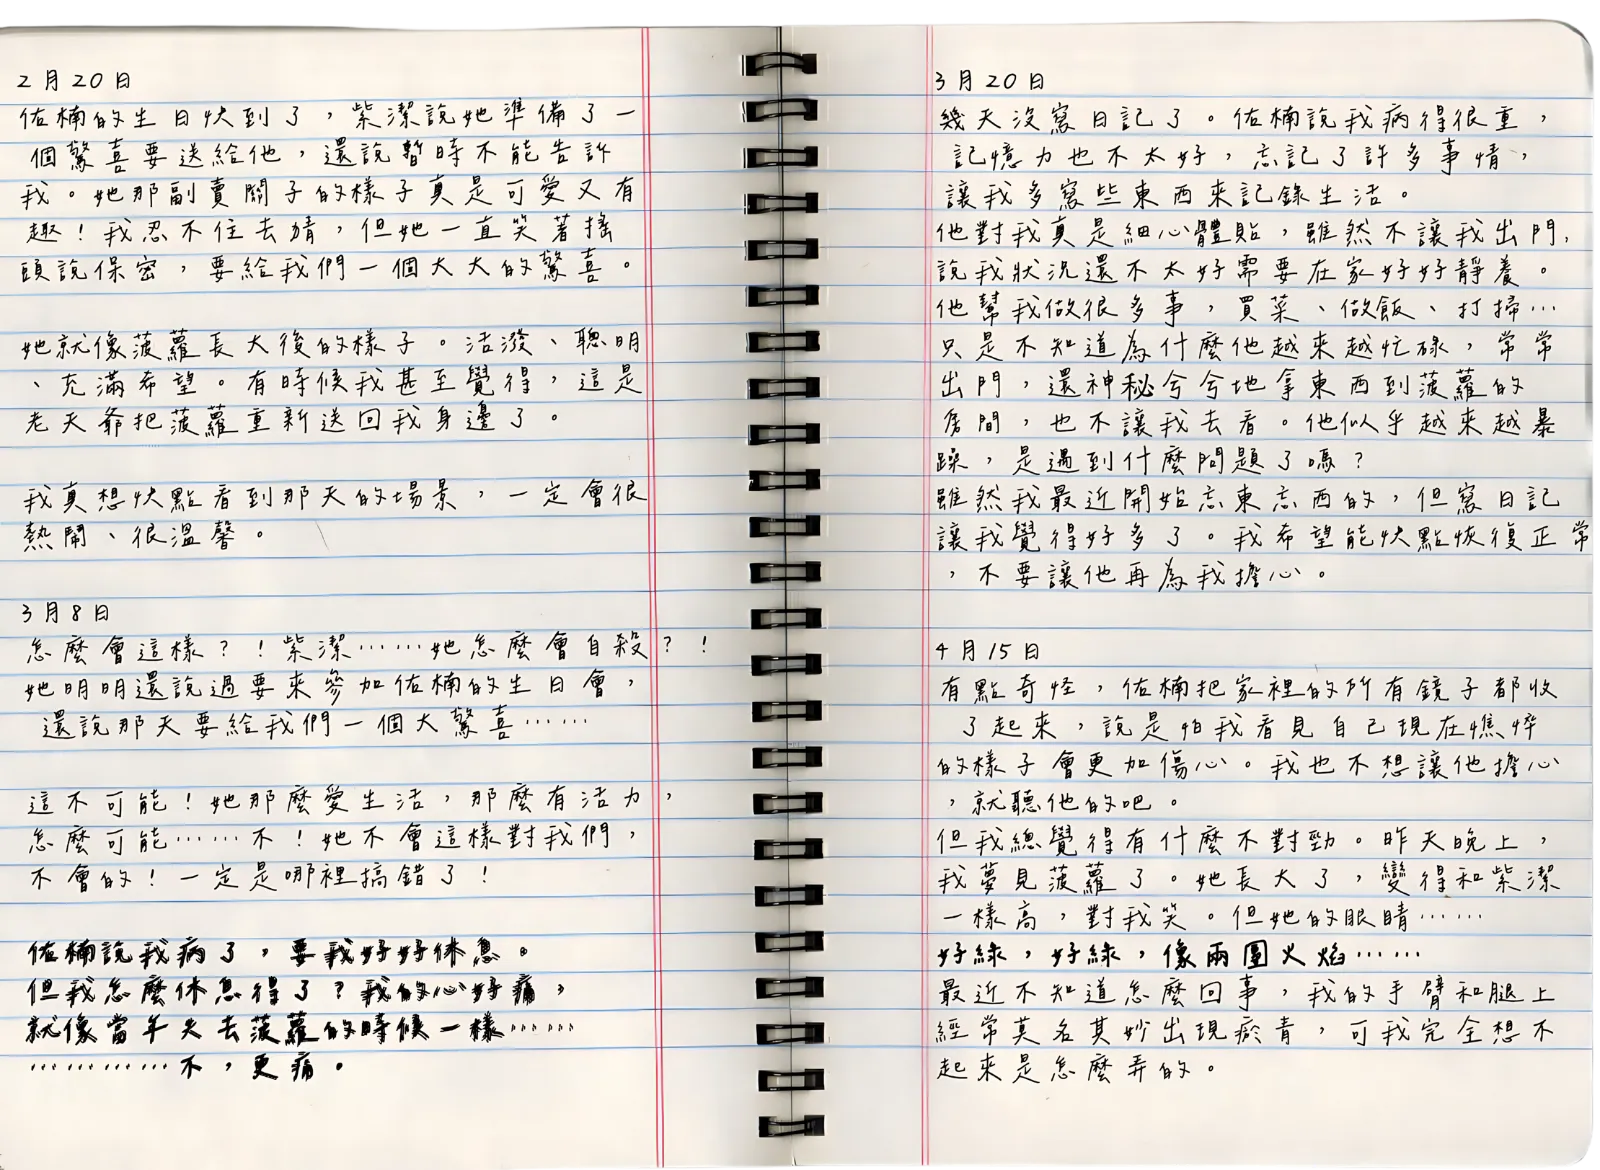 2月20日
佑楠的生日快到了，紫潔說她準備了一
個驚喜要送給他，還說暫時不能告訴
我。她那副賣關子的樣子真是可愛又有
趣！我忍不住去猜，但她一直笑著搖
頭說保密，要給我們一個大大的驚喜。
她就像菠蘿長大後的樣子。活潑、聰明
、充滿希望。有時候我甚至覺得，這是
老天爺把菠蘿重新送回我身邊了。
我真想快點看到那天的場景，一定會很
熱鬧、很溫馨。
3月8日
怎麼會這樣？！紫潔……她怎麼會自殺？！
她明明還說過要來參加佑楠的生日會，
還說那天要給我們一個大驚喜……
這不可能！她那麼愛生活，那麼有活力，
怎麼可能……不！她不會這樣對我們，
不會的！一定是哪裡搞錯了！
佑楠說我病了，要我好好休息。
但我怎麼休息得了？我的心好痛，
就像當年失去菠蘿的時候一樣……
…………不，更痛。
3月20日
幾天沒寫日記了。佑楠說我病得很重，
記憶力也不太好，忘記了許多事情，
讓我多寫些東西來記錄生活。
他對我真是細心體貼，雖然不讓我出門，
說我狀況還不太好需要在家好好靜養。
他幫我做很多事，買菜、做飯、打掃…
只是不知道為什麼他越來越忙碌，常常
出門，還神秘兮兮地拿東西到菠蘿的
房間，也不讓我去看。他似乎越來越暴
躁，是遇到什麼問題了嗎？
雖然我最近開始忘東忘西的，但寫日記
讓我覺得好多了。我希望能快點恢復正常
，不要讓他再為我擔心。
4月15日
有點奇怪，佑楠把家裡的所有鏡子都收
了起來，說是怕我看見自己現在憔悴
的樣子會更加傷心。我也不想讓他擔心
，就聽他的吧。
但我總覺得有什麼不對勁。昨天晚上，
我夢見菠蘿了。她長大了，變得和紫潔
一樣高，對我笑。但她的眼睛……
好綠，好綠，像兩團火焰……
最近不知道怎麼回事，我的手臂和腿上
經常莫名其妙出現瘀青，可我完全想不
起來是怎麼弄的。